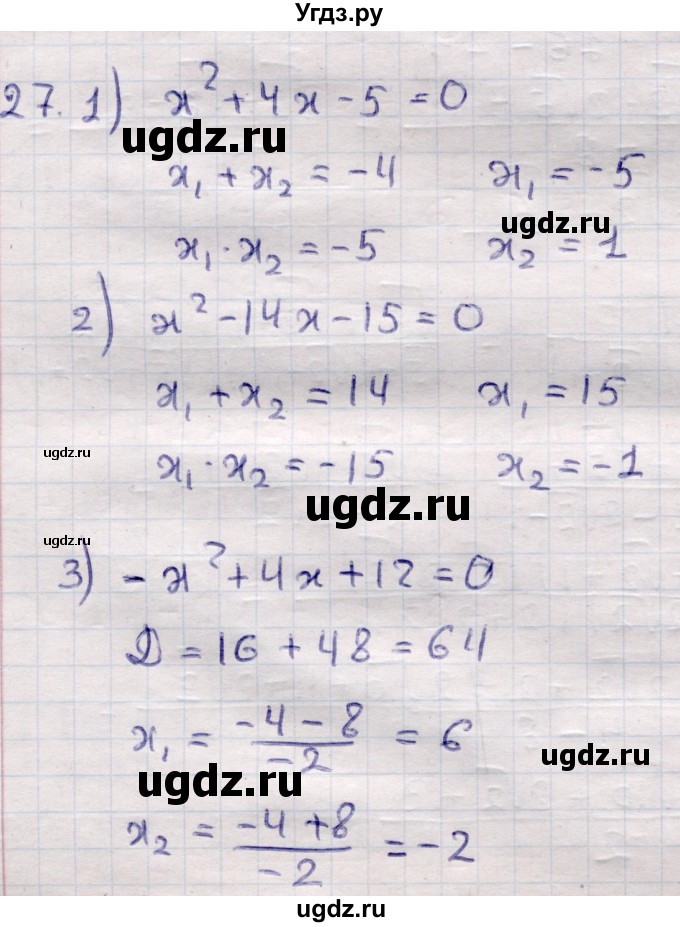 Угдз.ру
27. 1) x² + 4x - 5 = 0
ugdz.ru
x₁ + x₂ = -4 x₁ = -5
ugdz.ru
x₁ · x₂ = -5 x₂ = 1
2) x² - 14x - 15 = 0
x₁ + x₂ = 14 x₁ = 15
ugdz.ru
x₁ · x₂ = -15 x₂ = -1
ugdz.ru
ugdz.ru
3) -x² + 4x + 12 = 0
D = 16 + 48 = 64
x₁ = (-4 - 8)/(-2) = 6
ugdz.ru
ugdz.ru
x₂ = (-4 + 8)/(-2) = -2
ugdz.ru